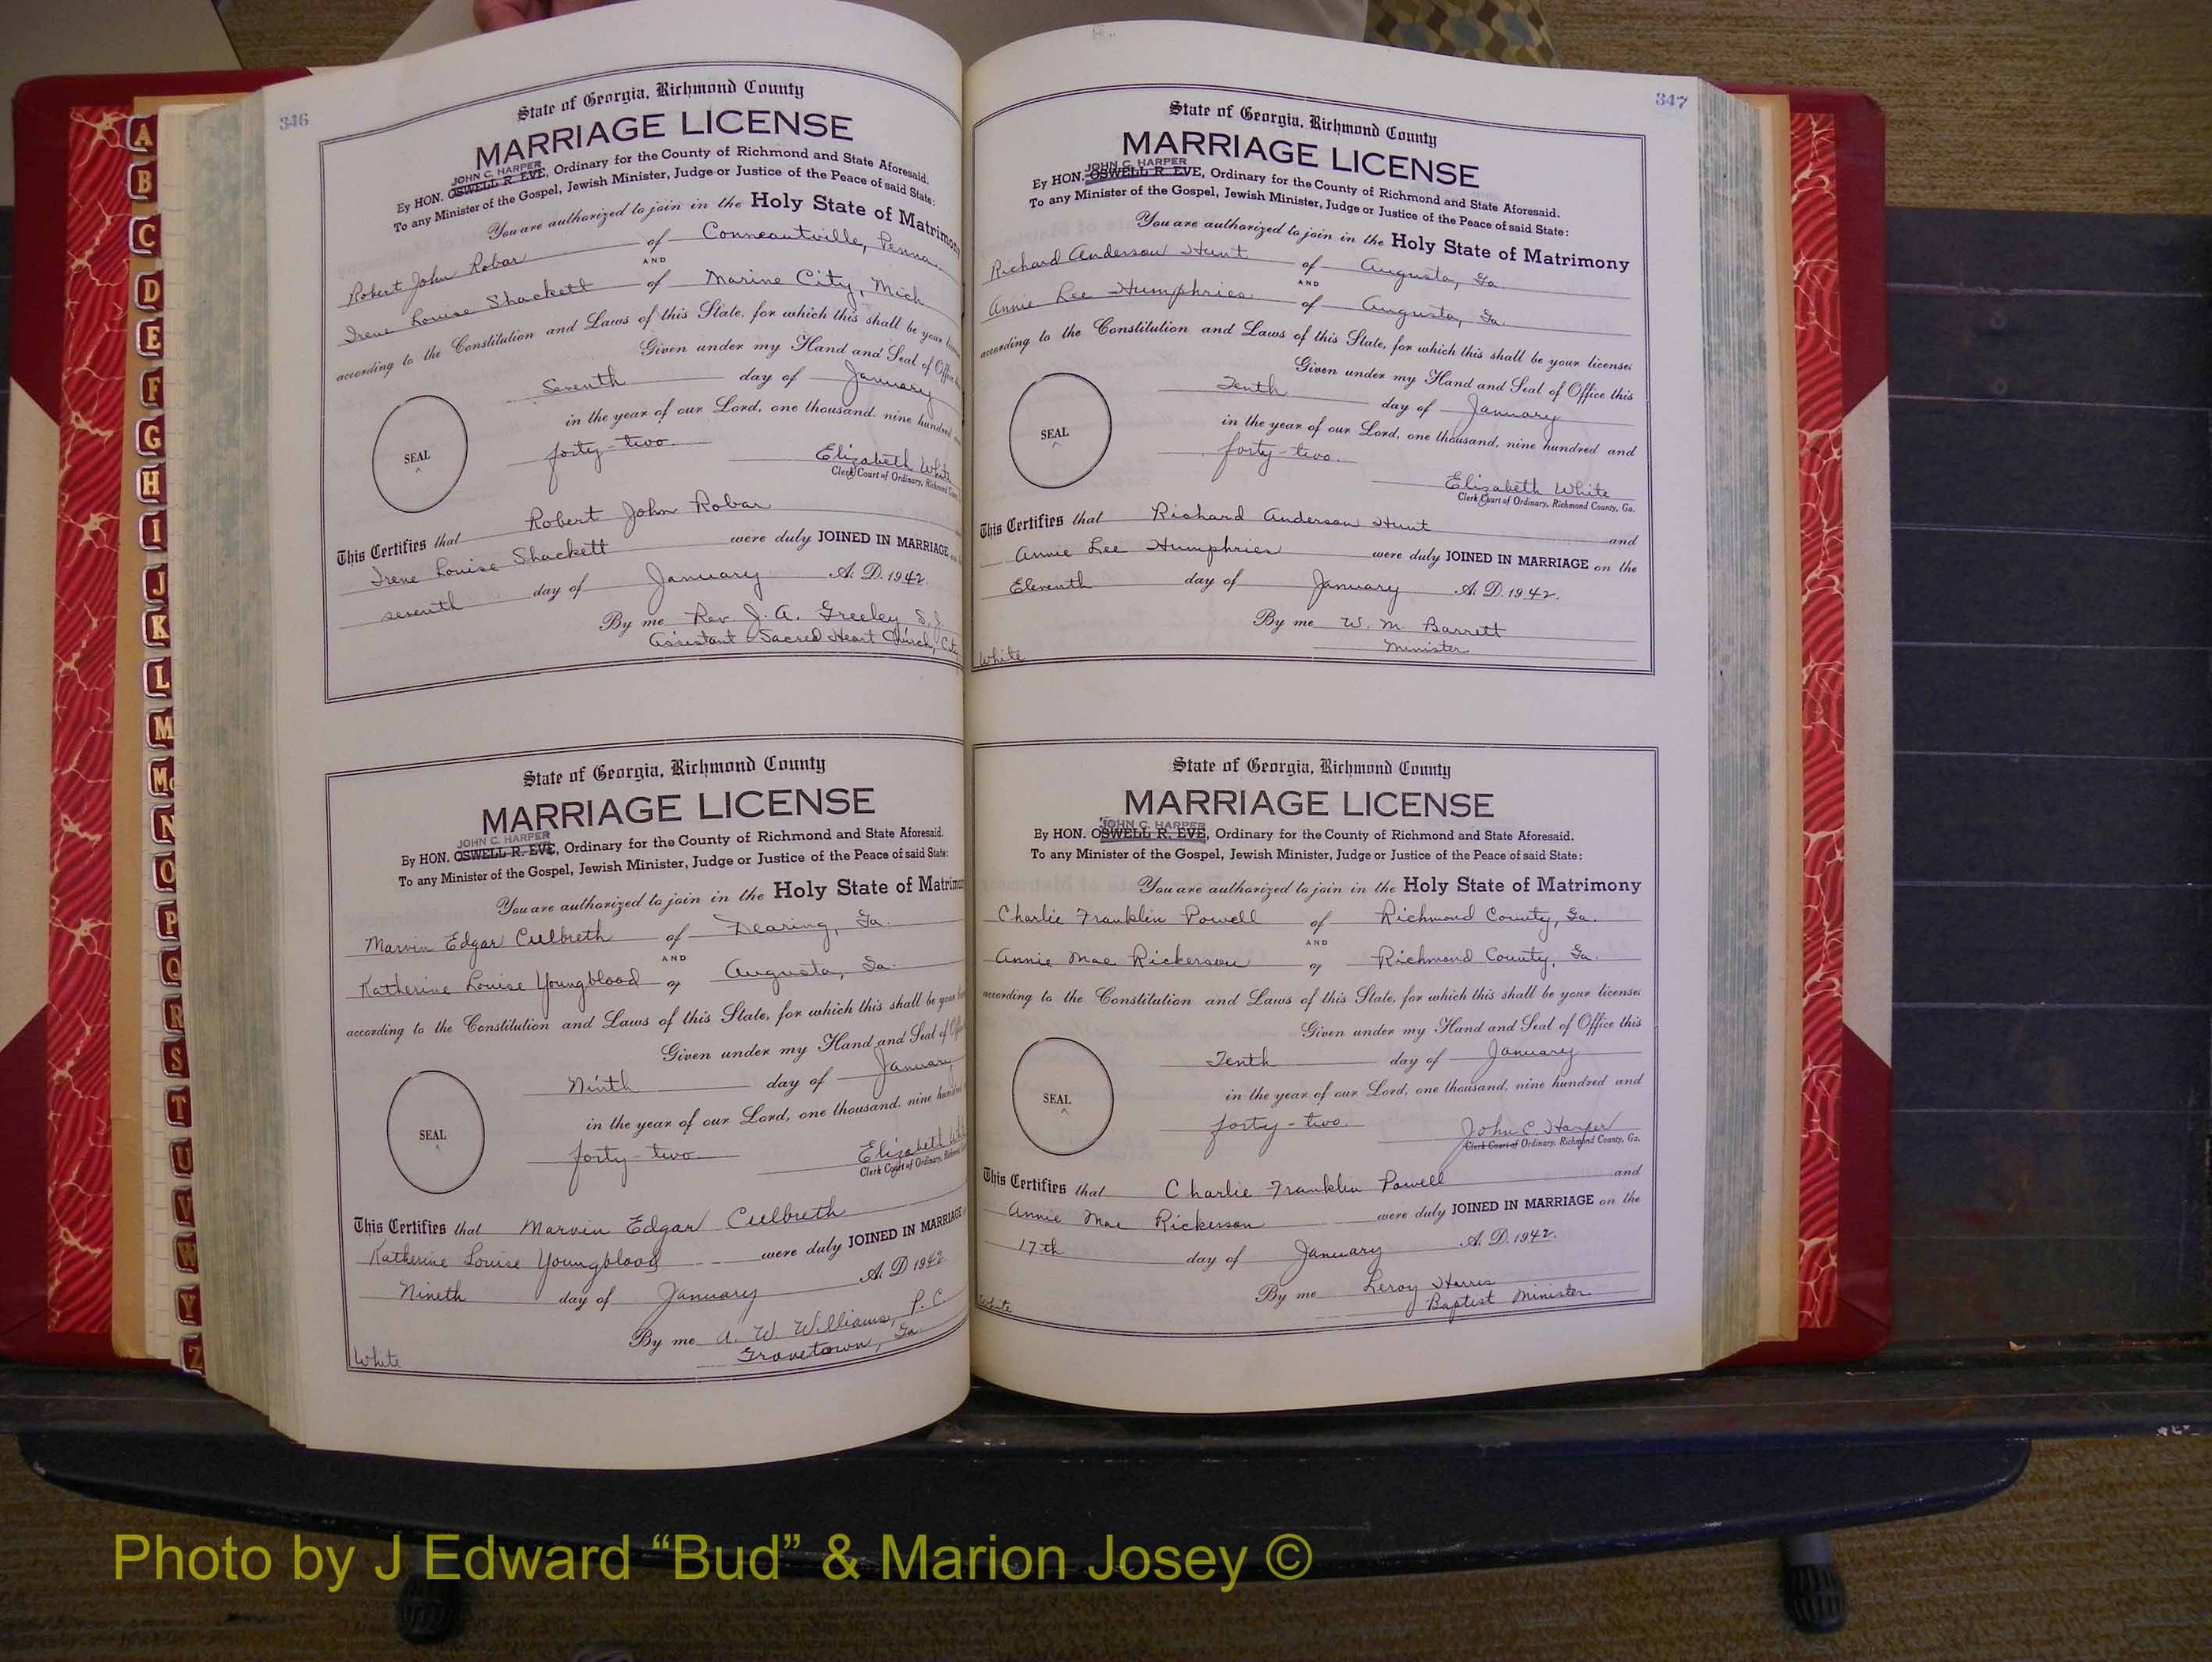 346
State of Georgia, Richmond County
MARRIAGE LICENSE
JOHN C. HARPER
By HON. OSWELL R. EVE, Ordinary for the County of Richmond and State Aforesaid.
To any Minister of the Gospel, Jewish Minister, Judge or Justice of the Peace of said State:
You are authorized to join in the Holy State of Matrimony
Robert John Robar of Conneautville, Penna.
AND
Irene Louise Shackett of Marine City, Mich
according to the Constitution and Laws of this State, for which this shall be your
Given under my Hand and Seal of Office
Seventh day of January
in the year of our Lord, one thousand, nine hundred
forty-two.
SEAL
Elizabeth White
Clerk Court of Ordinary, Richmond
This Certifies that Robert John Robar
Irene Louise Shackett were duly JOINED IN MARRIAGE
seventh day of January A. D. 1942
By me Rev. J. A. Greeley S. J.
Assistant Sacred Heart Church,
State of Georgia, Richmond County
MARRIAGE LICENSE
JOHN C. HARPER
By HON. OSWELL R. EVE, Ordinary for the County of Richmond and State Aforesaid.
To any Minister of the Gospel, Jewish Minister, Judge or Justice of the Peace of said State:
You are authorized to join in the Holy State of
Marvin Edgar Culbreth of Dearing, Ga.
AND
Katherine Louise Youngblood of Augusta, Ga.
according to the Constitution and Laws of this State, for which this shall be your
Given under my Hand and Seal of
Ninth day of January
in the year of our Lord, one thousand, nine
forty-two
SEAL
Elizabeth
Clerk Court of Ordinary,
This Certifies that Marvin Edgar Culbreth
Katherine Louise Youngblood were duly JOINED IN MARRIAGE
Nineth day of January A. D 1942
By me A. W. Williams, P. C.
Grovetown, Ga
White
347
State of Georgia, Richmond County
MARRIAGE LICENSE
JOHN C. HARPER
By HON. OSWELL R. EVE, Ordinary for the County of Richmond and State Aforesaid.
To any Minister of the Gospel, Jewish Minister, Judge or Justice of the Peace of said State:
You are authorized to join in the Holy State of Matrimony
Richard Anderson Hunt of Augusta, Ga.
AND
Annie Lee Humphries of Augusta, Ga.
according to the Constitution and Laws of this State, for which this shall be your license
Given under my Hand and Seal of Office this
Tenth day of January
in the year of our Lord, one thousand, nine hundred and
forty-two.
SEAL
Elizabeth White
Clerk Court of Ordinary, Richmond County, Ga.
This Certifies that Richard Anderson Hunt and
Annie Lee Humphries were duly JOINED IN MARRIAGE on the
Eleventh day of January A. D. 1942.
By me W. M. Barrett
Minister
White
State of Georgia, Richmond County
MARRIAGE LICENSE
JOHN C. HARPER
By HON. OSWELL R. EVE, Ordinary for the County of Richmond and State Aforesaid.
To any Minister of the Gospel, Jewish Minister, Judge or Justice of the Peace of said State:
You are authorized to join in the Holy State of Matrimony
Charlie Franklin Powell of Richmond County, Ga.
AND
Annie Mae Rickerson of Richmond County, Ga.
according to the Constitution and Laws of this State, for which this shall be your license
Given under my Hand and Seal of Office this
Tenth day of January
in the year of our Lord, one thousand, nine hundred and
forty-two.
SEAL
John C. Harper
Clerk Court of Ordinary, Richmond County, Ga.
This Certifies that Charlie Franklin Powell and
Annie Mae Rickerson were duly JOINED IN MARRIAGE on the
17th day of January A. D. 1942.
By me Leroy Harris
Baptist Minister
White
A
B
C
D
E
F
G
H
I
J
K
L
M
Mc
N
O
P
Q
R
S
T
U
V
W
Y
Z
Photo by J Edward “Bud” & Marion Josey ©